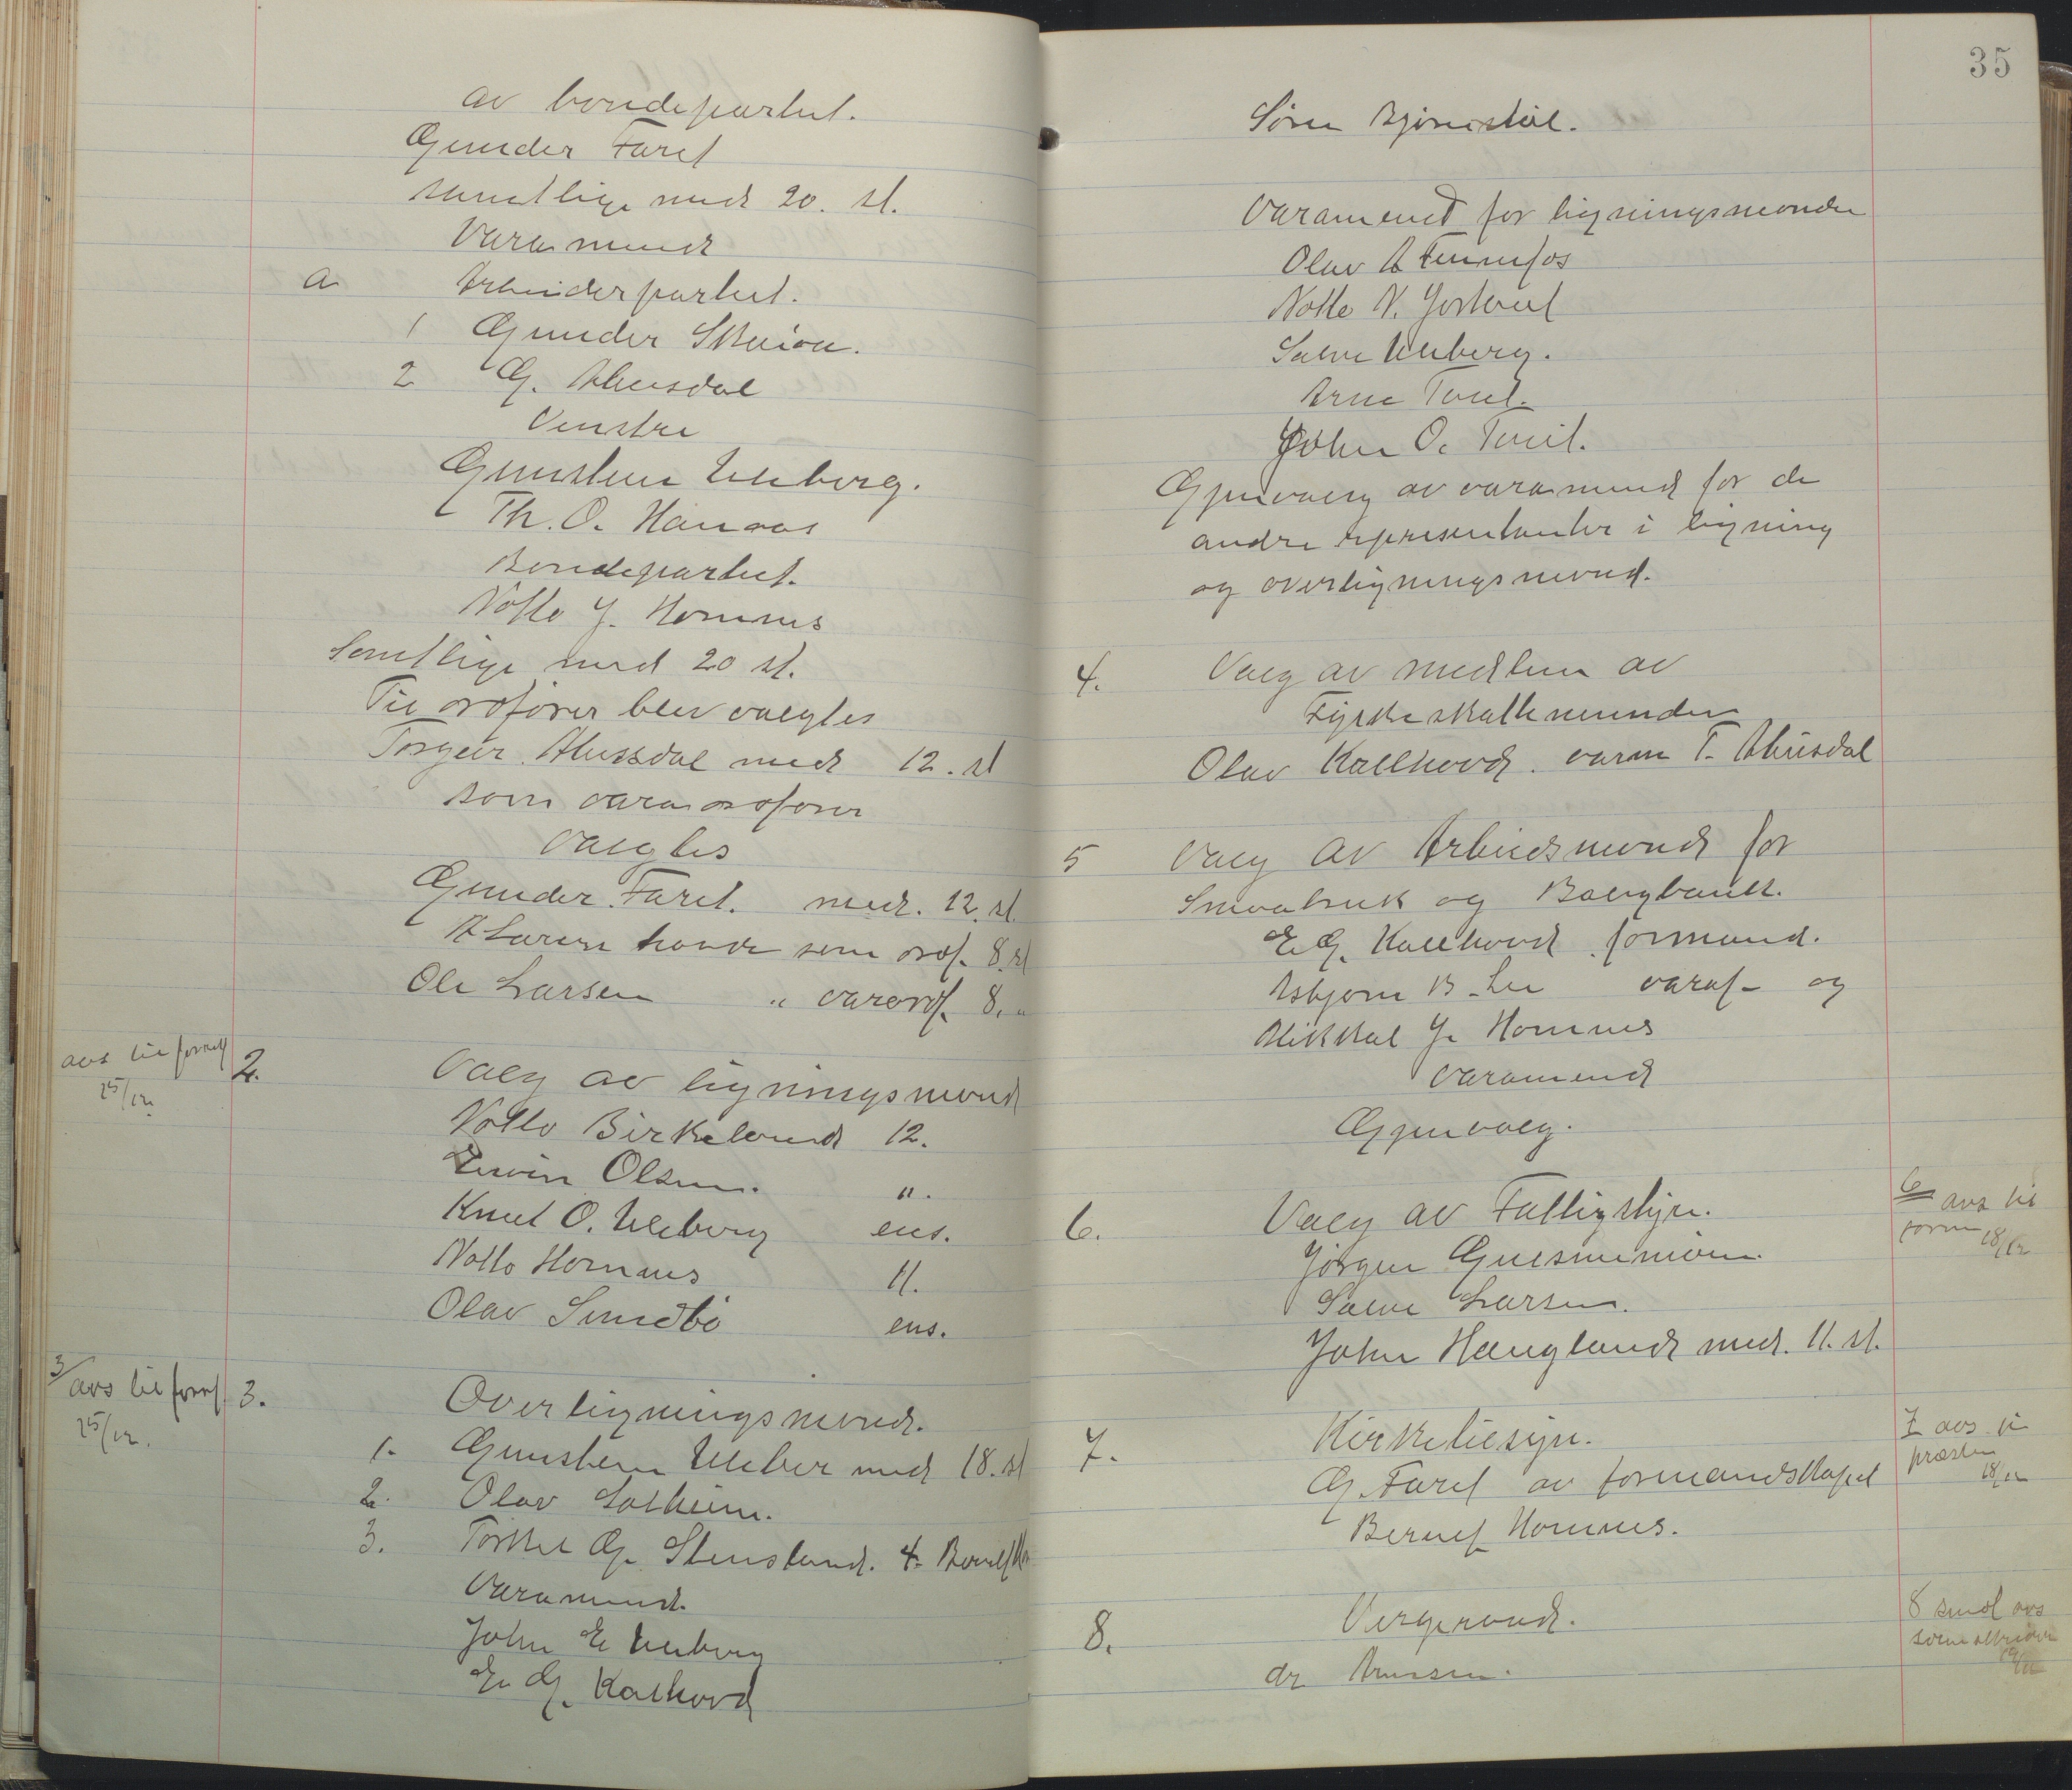 av bondepartiet.
Gunder Faret
samtlige med 20. st.
Varamænd
a Arbeiderpartiet.
1 Gunder Skaiaa.
2 G. Ahusdal
Venstre
Gunsteen Uleberg.
Th. O. Hanaas
Bondepartiet.
Notto J. Homme
Samtlige med 20 st.
Til ordfører blev valgtes
Torgeir Ahusdal med 12. st
som varaordfører
valgtes
Gunder Faret. med. 12. st.
A Larsen havde som ordf. 8. st
Ole Larsen " varordf. 8. "
avs til forml
15/12
2. Valg av ligningsmænd
Notto Birkeland 12.
Olsen. ".
Knut O. Uleberg ens.
Notto Homme 11.
Olav Sundbø ens.
3/ avs til formf.
15/12.
3. Overligningsmænd.
1. Gunsteen Uleber med 18. st
2. Olav Solheim.
3. Torkel G. Stensland. 4.
Varamænd.
John E Uleberg
E. G. Kalhovd
35
Søren Bjørnstøl.
Varamænd for ligningsmænder
Olav A Fennefos
Notto N. Jortveit
Salve Uleberg.
Arne Tveit.
John O. Tveit.
Gjenvalg av varamænd for de
andre representanter i ligning
og overligningsmænd.
4. Valg av medlem av
Fylkesskattenemnden
Olav Kallhovd. varm T. Ahusdal
5 Valg av Arbeidsmænd for
Smaabruk og Boligbank.
E G. Kallhovd formand.
Asbjørn B. Lie varaf- og
Mikkal J. Homme
varamænd
Gjenvalg.
6. Valg av Fattigstyre.
6 avs til
form 18/12
Jørgen
Salve Larsen.
John Haugland med. 11. st.
7. Kirketilsyn.
7 avs til
præsten
18/12
G. Faret av formandskapet
Bernt Homme.
8. Vergeraad.
8 sendt avs
19/12
dr